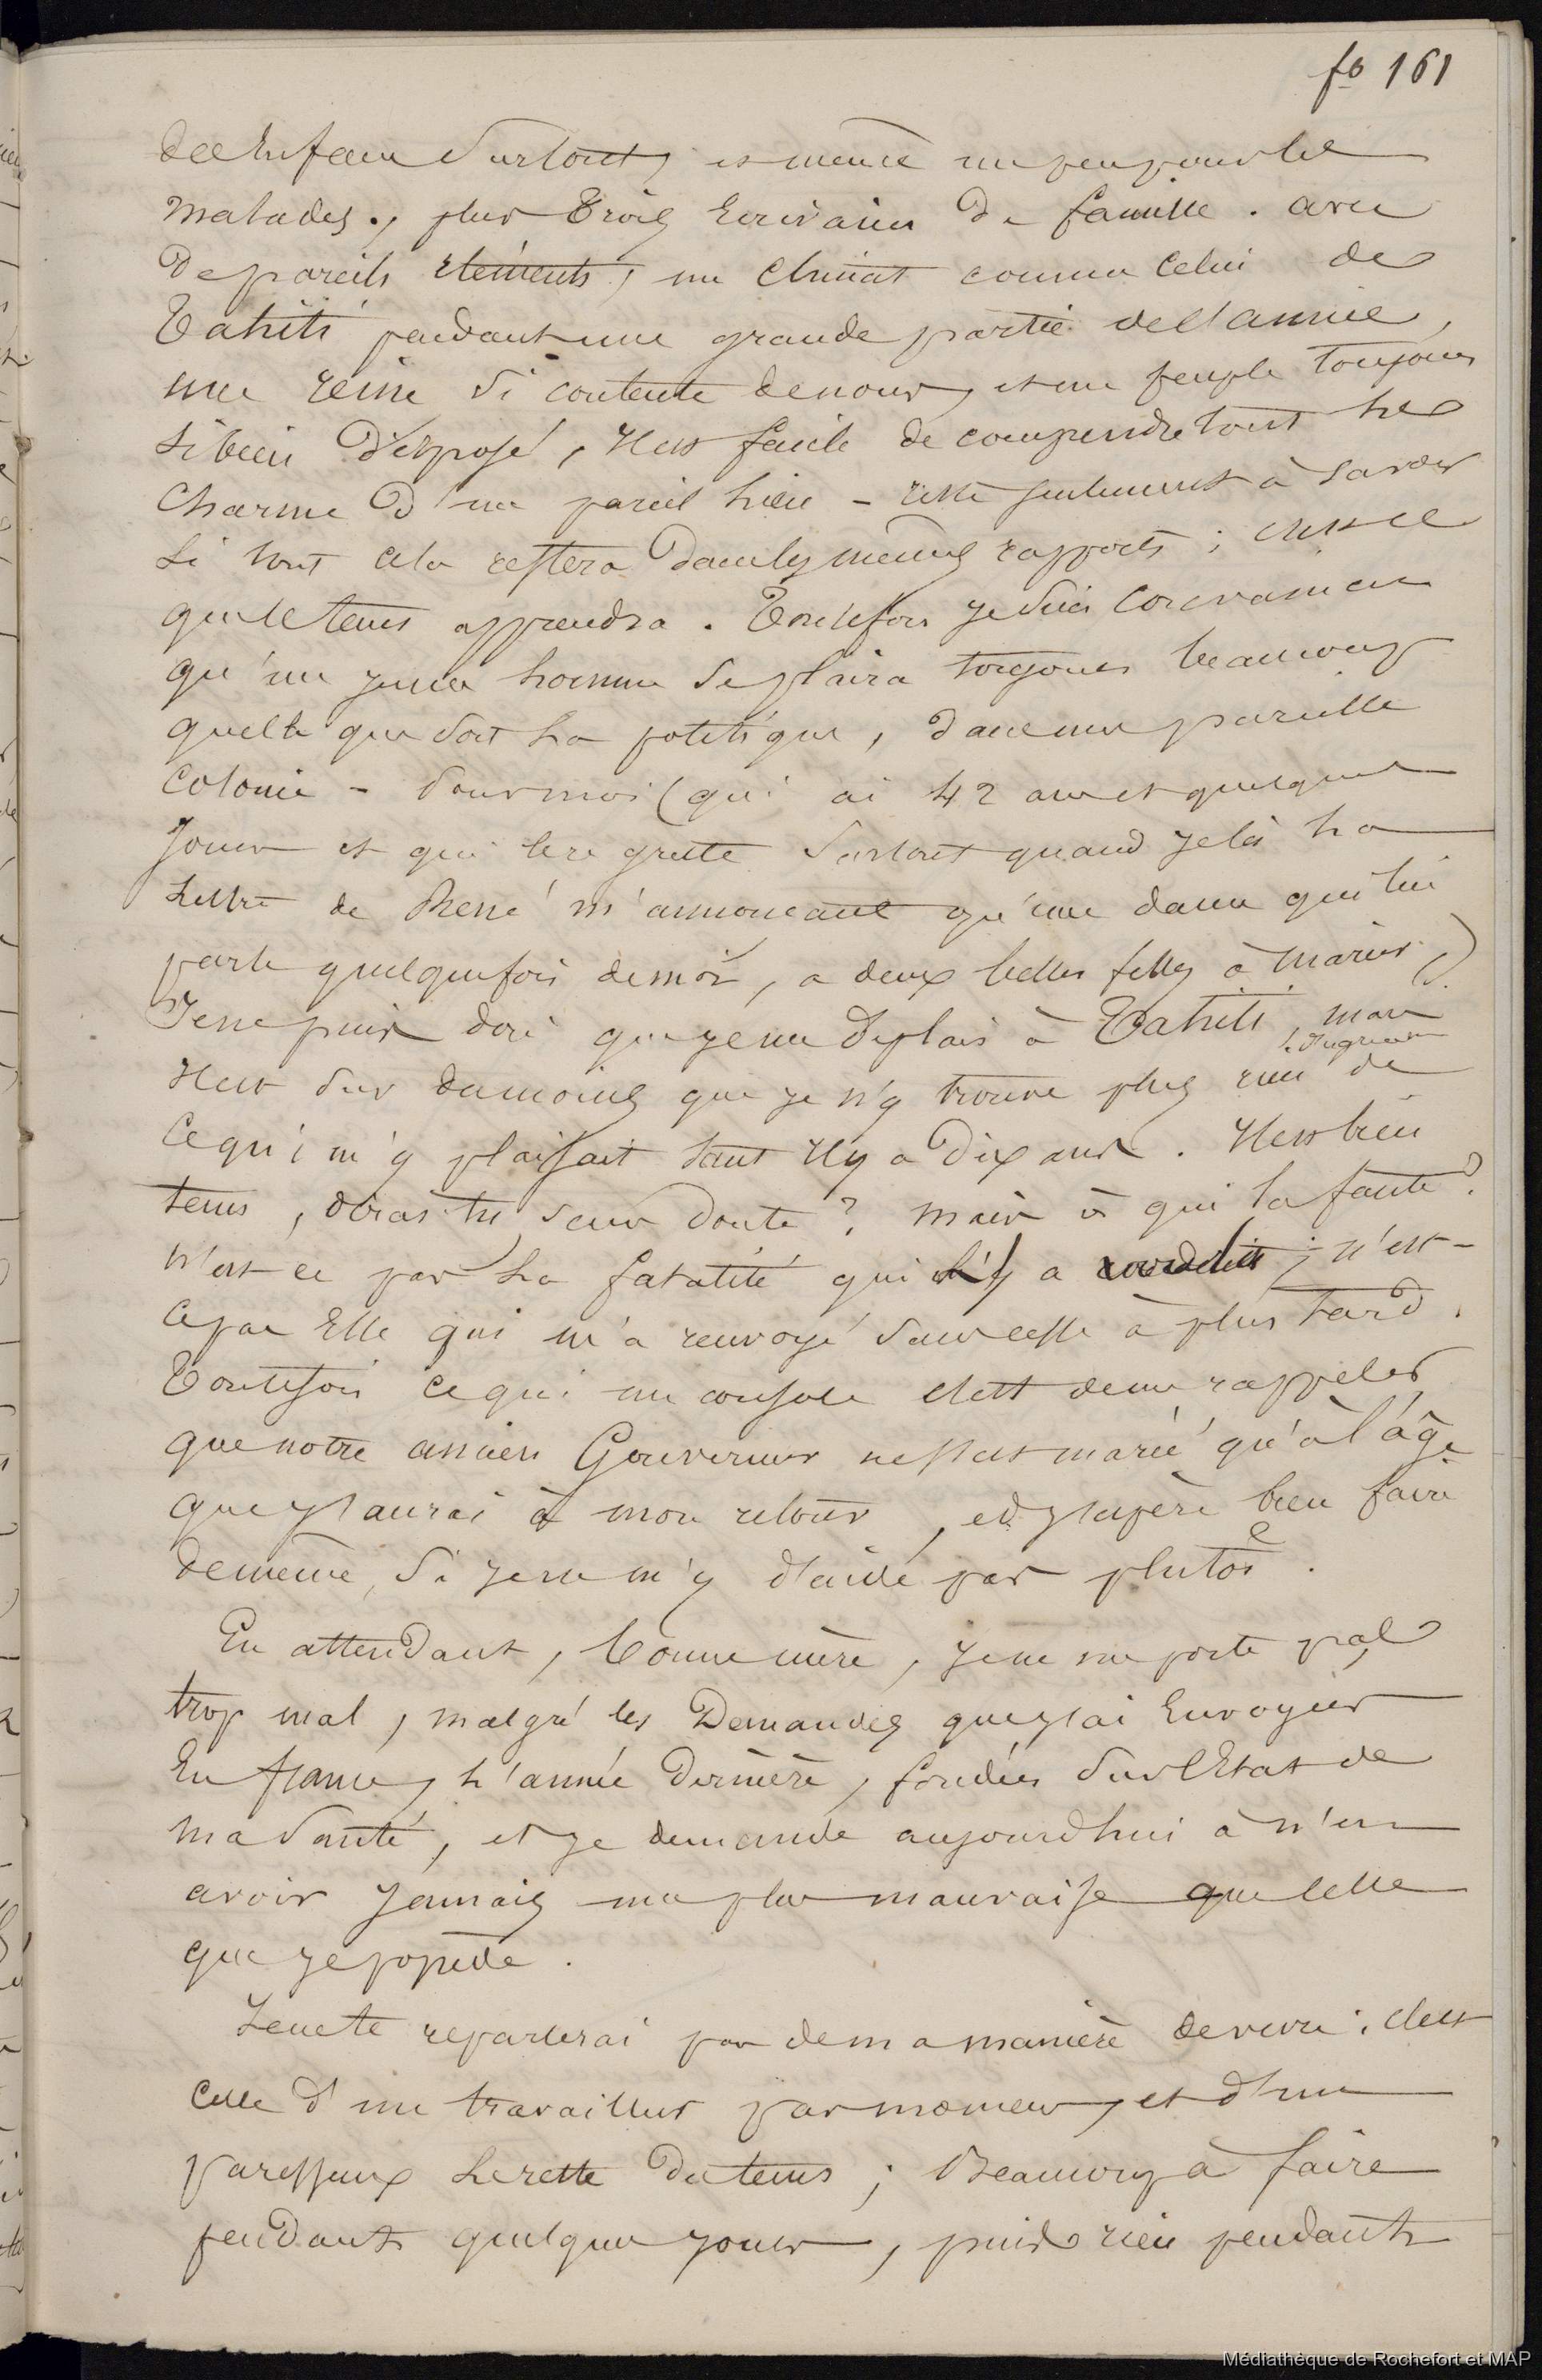 fo 161
des enfans surtout, et même un peu pour les
malades, plus trois écrivains de famille. avec
de pareils éléments, un climat comme celui de
Tahiti pendant une grande partie de l'année,
une reine si contente de nous, et un peuple toujours
si bien disposé, il est facile de comprendre tout le
charme d'un pareil lieu - reste seulement à savoir
si tout cela restera dans les mêmes rapports ; c'est ce
que le tems apprendra. Toutefois je suis convaincu
qu'un jeune homme se plaira toujours beaucoup
quelle que soit la politique, dans une pareille
colonie - Pour moi (qui ai 42 ans et quelques
jours et qui le regrette surtout quand je lis la
lettre de René m'annonçant qu'une dame qui lui
parle quelquefois de moi, a deux belles filles à marier)
Je ne puis dire que je me déplais à Tahiti, mais
il est sûr du moins que je n'y trouve plus rien de
ce qui m'y plaisait tant il y a dix ans. Il est bien
tems, diras-tu sans doute ? mais à qui la faute ?
n'est ce pas la fatalité qui l'y a ; n'est-
ce pas Elle qui m'a renvoyé sans cesse à plus tard.
Toutefois ce qui me console c'est de me rappeler
que notre ancien Gouverneur ne s'est marié qu'à l'âge
que j'aurai à mon retour, et j'espère bien faire
de même, si je ne m'y décide pas plutôt.
En attendant, bonne mère, je ne me porte pas
trop mal, malgré les Demandes que j'ai Envoyées
En france, l'année dernière, fondées sur l'Etat de
ma santé, et je demande aujourd'hui à n'en
avoir jamais une plus mauvaise que celle
que je possède.
Je ne te reparlerai pas de ma manière de vivre : c'est
celle d'un travailleur par momens, et d'un
paresseux le reste du tems ; Beaucoup à faire
pendant quelques jours, puis rien pendant